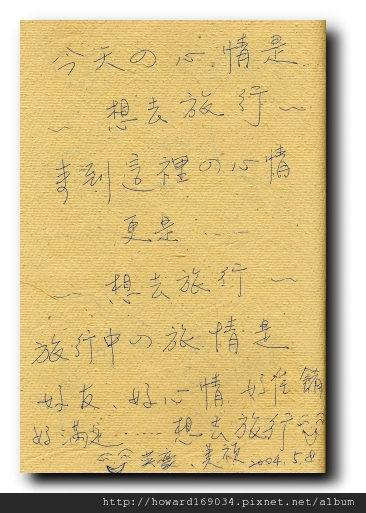 今天の心情是
～想去旅行～
來到這裡の心情
更是……
～想去旅行～
旅行中の旅情是
好友、好心情、好住舖
好滿足……想去旅行
美頑 2004.5.8
http://howard169034.pixnet.net/album